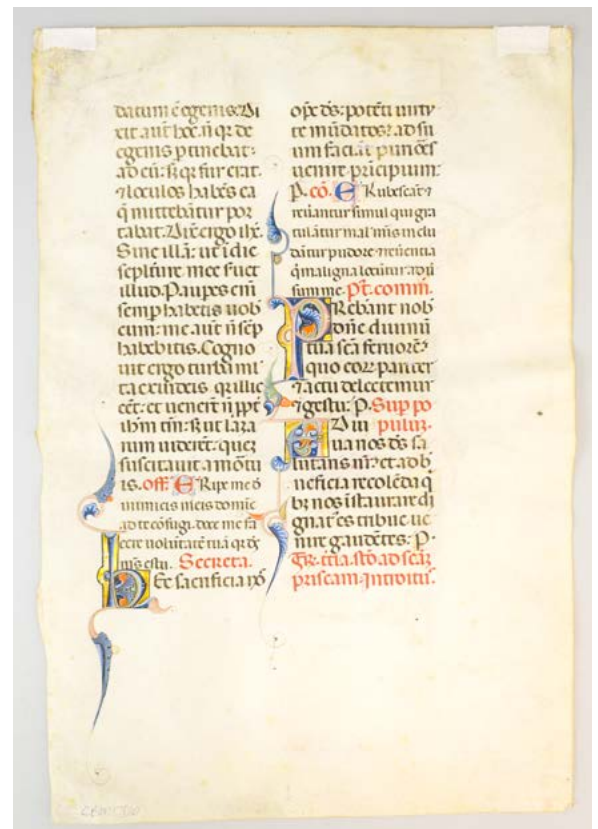 datum ē egenis? Di
xit aūt hoc: n̄ q̄ de
egenis ptinebat:
ad eū: s; q̄ fur erat.
⁊ loculos habēs ea
q̄ mittebātur por
tabat. Dix̄ ergo ihc̄.
Sine illā: ut ī die
sepltur̄e mee s̄uet
illud. Paupes eni
semp habetis uob
cum: me aūt n̄ sēp
habebitis. Cogno
uit ergo turba ml
ta ex iudeis q̄ illic
eēt: et uener̄t n̄ ppt
ih̄m tm̄: s; ut laza
rum uider̄et: quez
suscitauit a mōtu
is. off. Eripe me ō
inimicis meis domīe
ad te cōfugi. doce me fa
cere uoluntatē tuā q̄ ds̄
ms̄ es tu. Secreta.
hec sacrificia
op̄e ds̄: potēti uirtu
te mūdatos: ad su
um faciāt puriōes
uenire pricipium.
P. cō. Erubescāt ⁊
reueantur simul qui gra
tulātur mal' mīs indu
ātur pudore ⁊ reuerentia
q̄ maligna locūtur adū
sum me. Pt. comm.
Prebeant nob
dn̄e diuinū
tua sc̄a feruorē:
quo eor̄ pariter
⁊ actu delectemur
⁊ gestu: P. Sup po
Adiu pulum.
ua nos ds̄ sa
lutaris nr̄: et ad b̄
neficia recolēda q̄
b; nos īstaurare di
gnat' es tribue ue
nire gaudētes: P.
Fr. t̄cia. stō. ad sc̄az
priscam. Introitus.